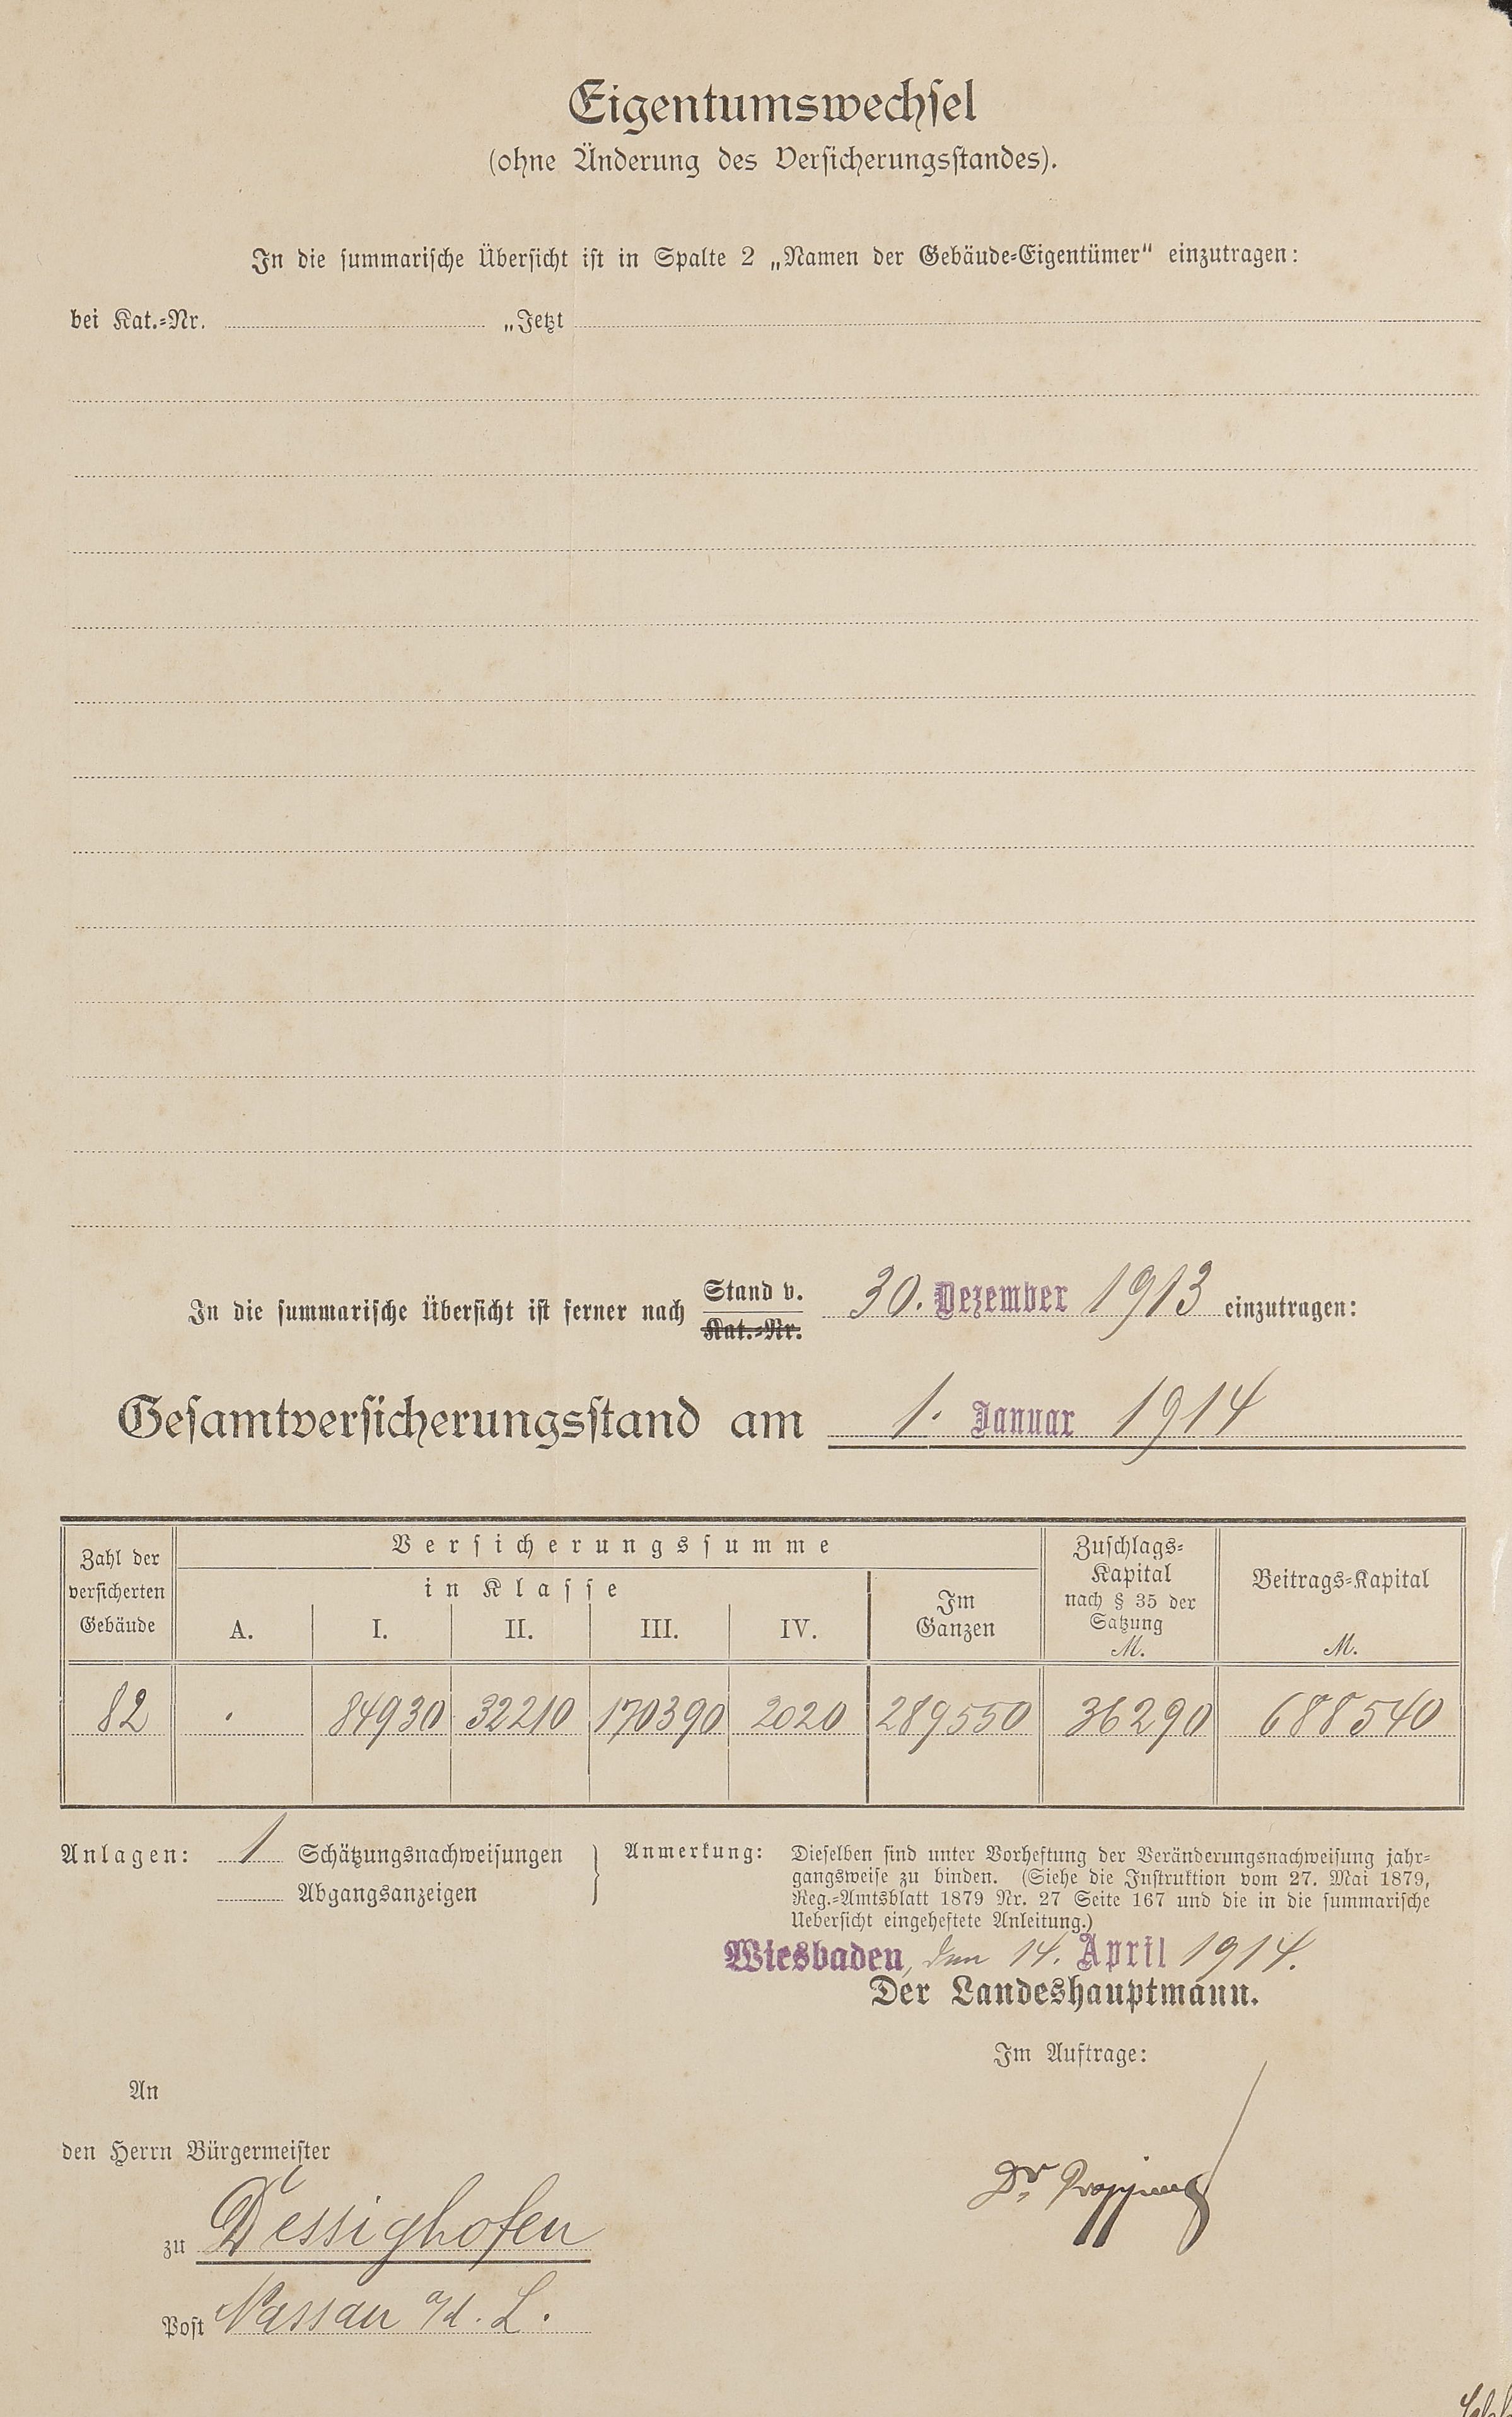 Eigentumswechsel
(ohne Änderung des Versicherungsstandes).
In die summarische Übersicht ist in Spalte 2 „Namen der Gebäude-Eigentümer“ einzutragen:
bei Kat.-Nr. „Jetzt
In die summarische Übersicht ist ferner nach Stand v. Kat.-Nr. 30. Dezember 1913 einzutragen:
Gesamtversicherungsstand am 1. Januar 1914
Zahl der versicherten Gebäude
Versicherungssumme
in Klasse
A. I. II. III. IV.
Im Ganzen
Zuschlags-Kapital nach § 35 der Satzung M.
Beitrags-Kapital M.
82 . 84930 32210 170390 2020 289550 36290 688540
Anlagen: 1 Schätzungsnachweisungen
Abgangsanzeigen
Anmerkung: Dieselben sind unter Vorheftung der Veränderungsnachweisung jahr-
gangsweise zu binden. (Siehe die Instruktion vom 27. Mai 1879,
Reg.-Amtsblatt 1879 Nr. 27 Seite 167 und die in die summarische
Uebersicht eingeheftete Anleitung.)
Wiesbaden, den 14. April 1914.
Der Landeshauptmann.
Im Auftrage:
Dr.
An
den Herrn Bürgermeister
zu Dessighofen
Post Nassau a/d. L.